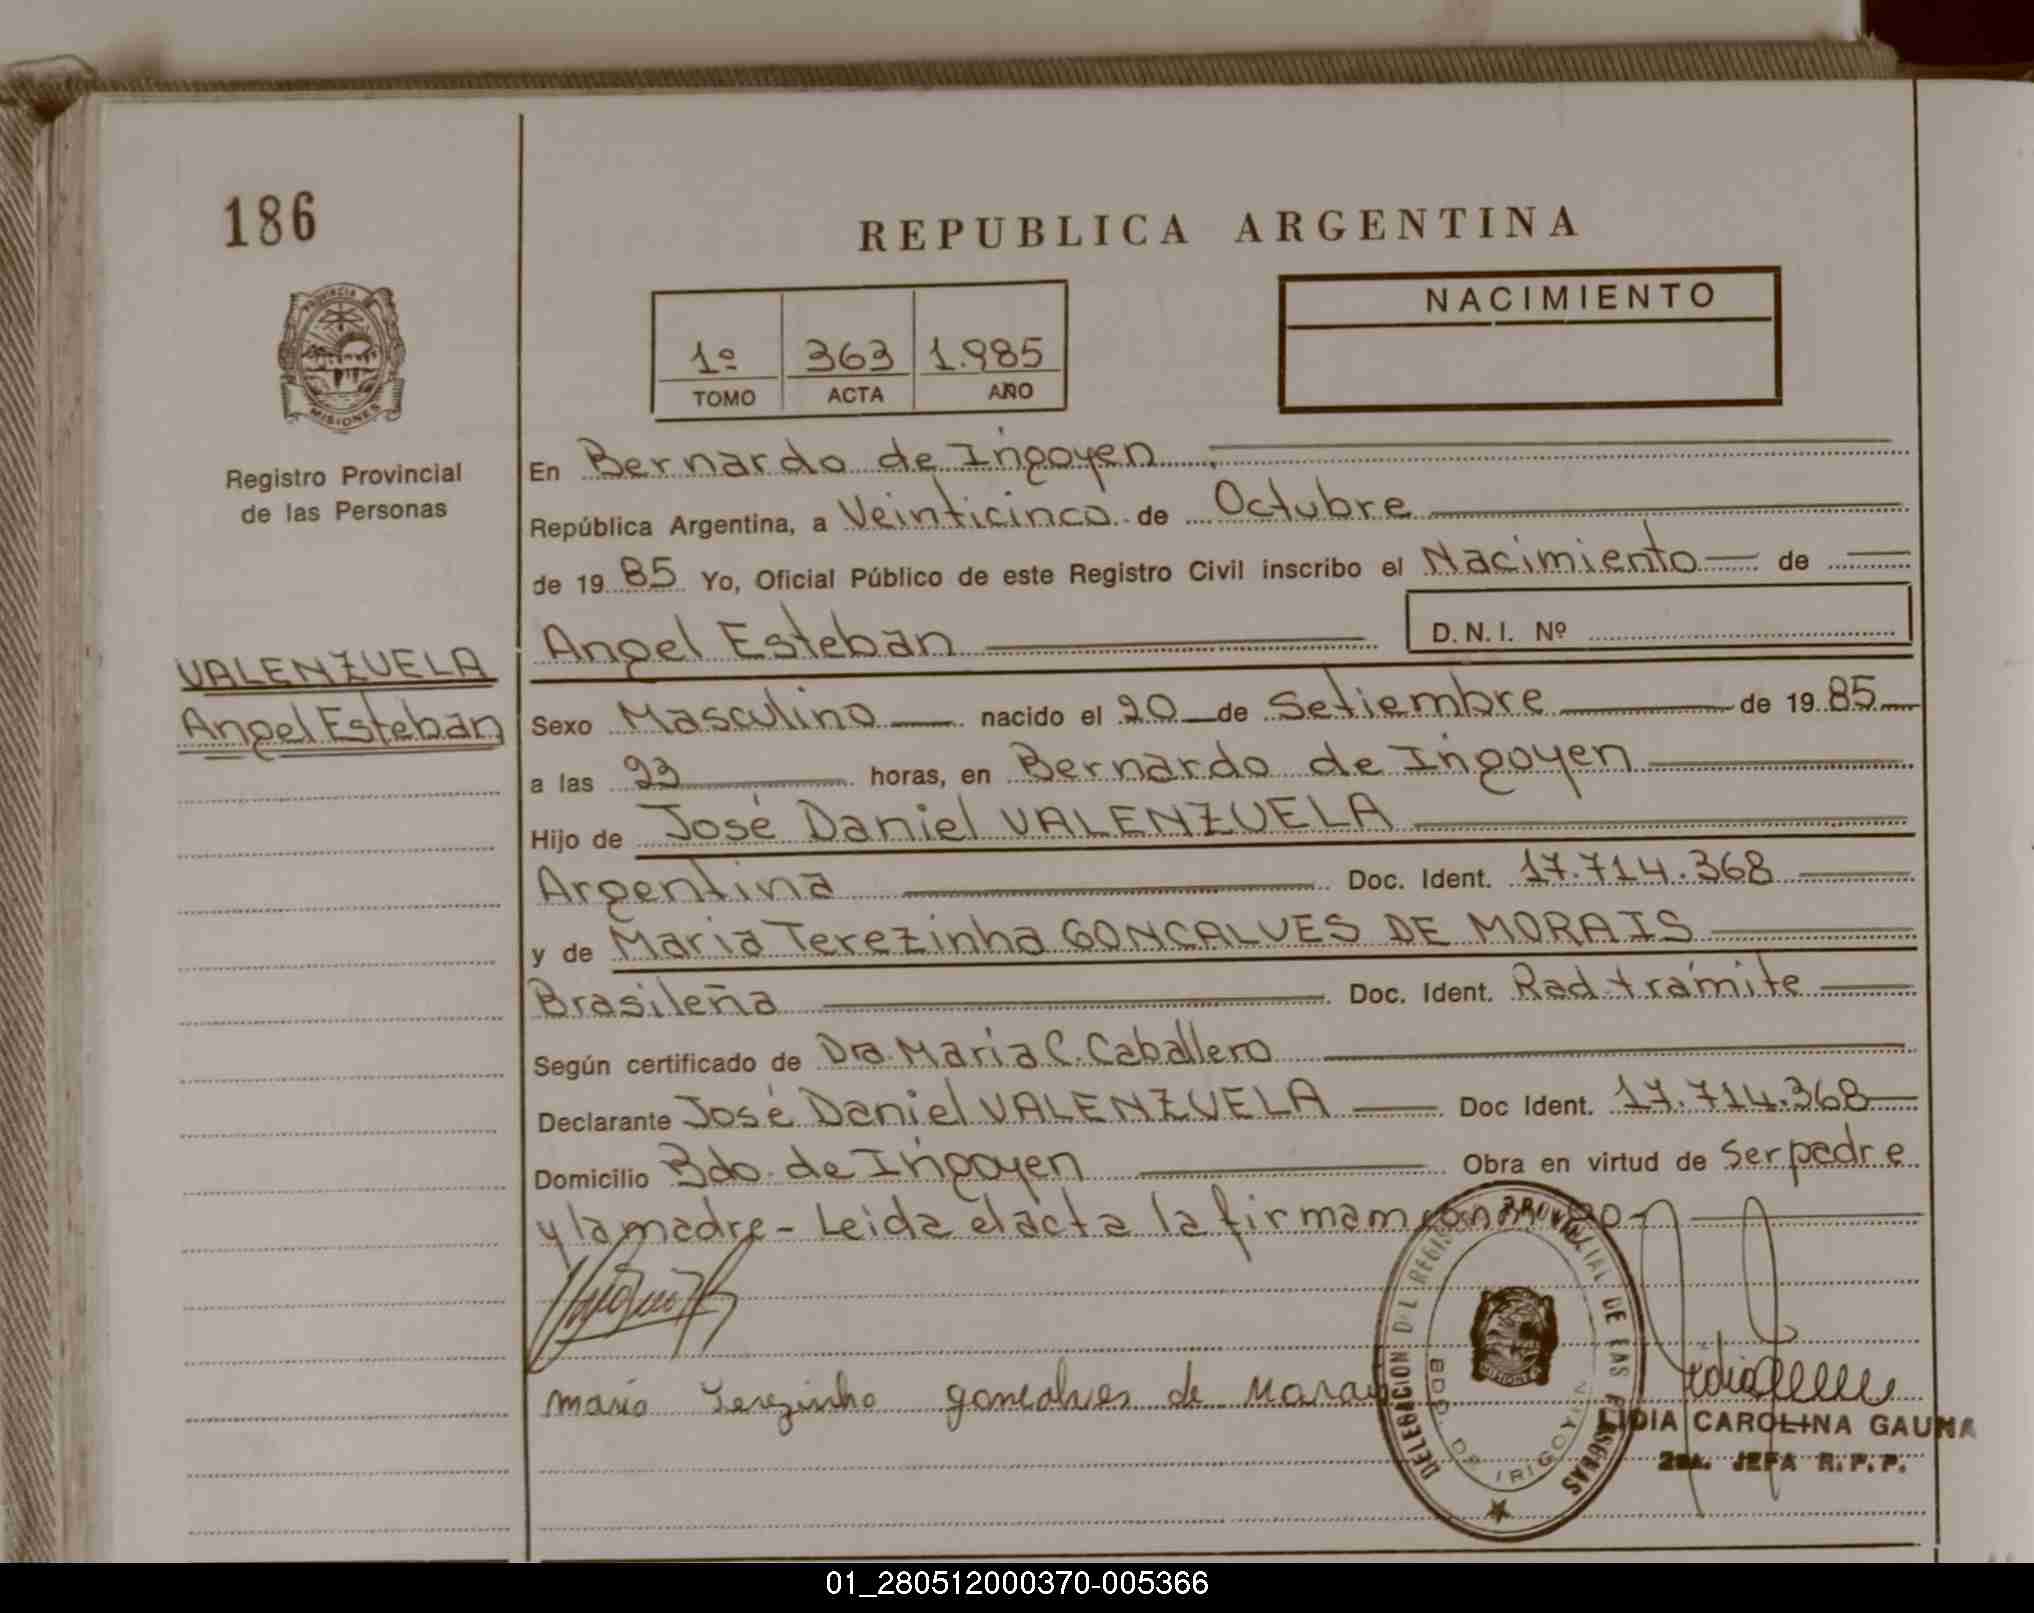 186
REPUBLICA ARGENTINA
PROVINCIA
MISIONES
Registro Provincial
de las Personas
NACIMIENTO
1º 363 1.985
TOMO ACTA AÑO
En Bernardo de Irigoyen
República Argentina, a Veinticinco de Octubre
de 19 85 Yo, Oficial Público de este Registro Civil inscribo el Nacimiento de
Angel Esteban D.N.I. Nº
VALENZUELA
Angel Esteban
Sexo Masculino nacido el 20 de Setiembre de 19 85
a las 23 horas, en Bernardo de Irigoyen
Hijo de José Daniel VALENZUELA
Argentina Doc. Ident. 17.714.368
y de Maria Terezinha GONCALVES DE MORAIS
Brasileña Doc. Ident. Rad trámite
Según certificado de Dra. Maria C. Caballero
Declarante José Daniel VALENZUELA Doc Ident. 17.714.368
Domicilio Bdo. de Irigoyen Obra en virtud de Ser padre
y la madre - Leida el acta la firmam conmigo-
maria Terezinha goncalves de Morais
DELEGACION DEL REGISTRO PROVINCIAL DE LAS PERSONAS
BDO. DE IRIGOYEN
MISIONES
LIDIA CAROLINA GAUNA
2da. JEFA R.P.P.
01_280512000370-005366